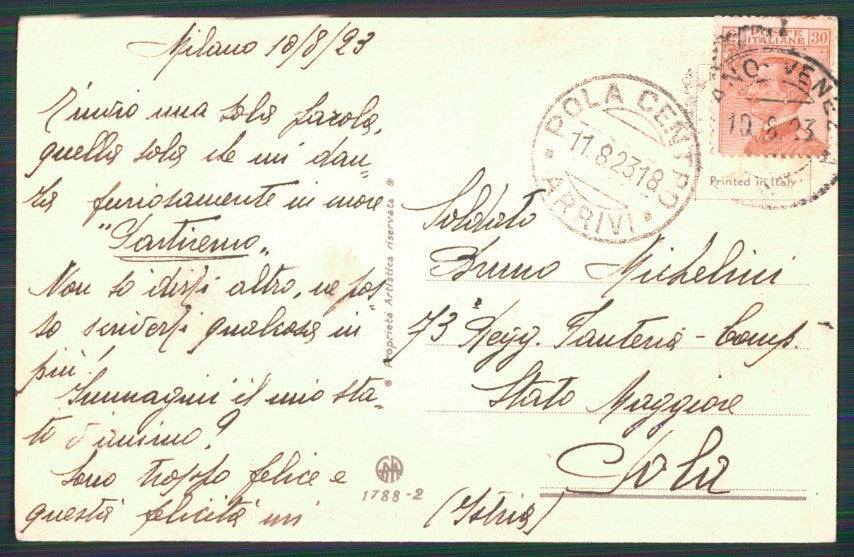 Milano 10/8/23
T'invio una sola parola,
quella sola che mi dan-
za furiosamente in
"Partiremo„
Non so dirti altro, ne pos-
so scriverti qualcosa in
più!
Immagini il mio sta-
to d'animo?
Sono troppo felice e
questa felicità mi
Proprietà Artistica riservata
1788-2
POSTE ITALIANE 30
10 8 23
POLA CENTRO
11.8.23 18
ARRIVI
Printed in Italy
Soldato
Bruno Michelini
73° Regg. Fanteria - Comp.
Stato Maggiore
Pola
(Istria)